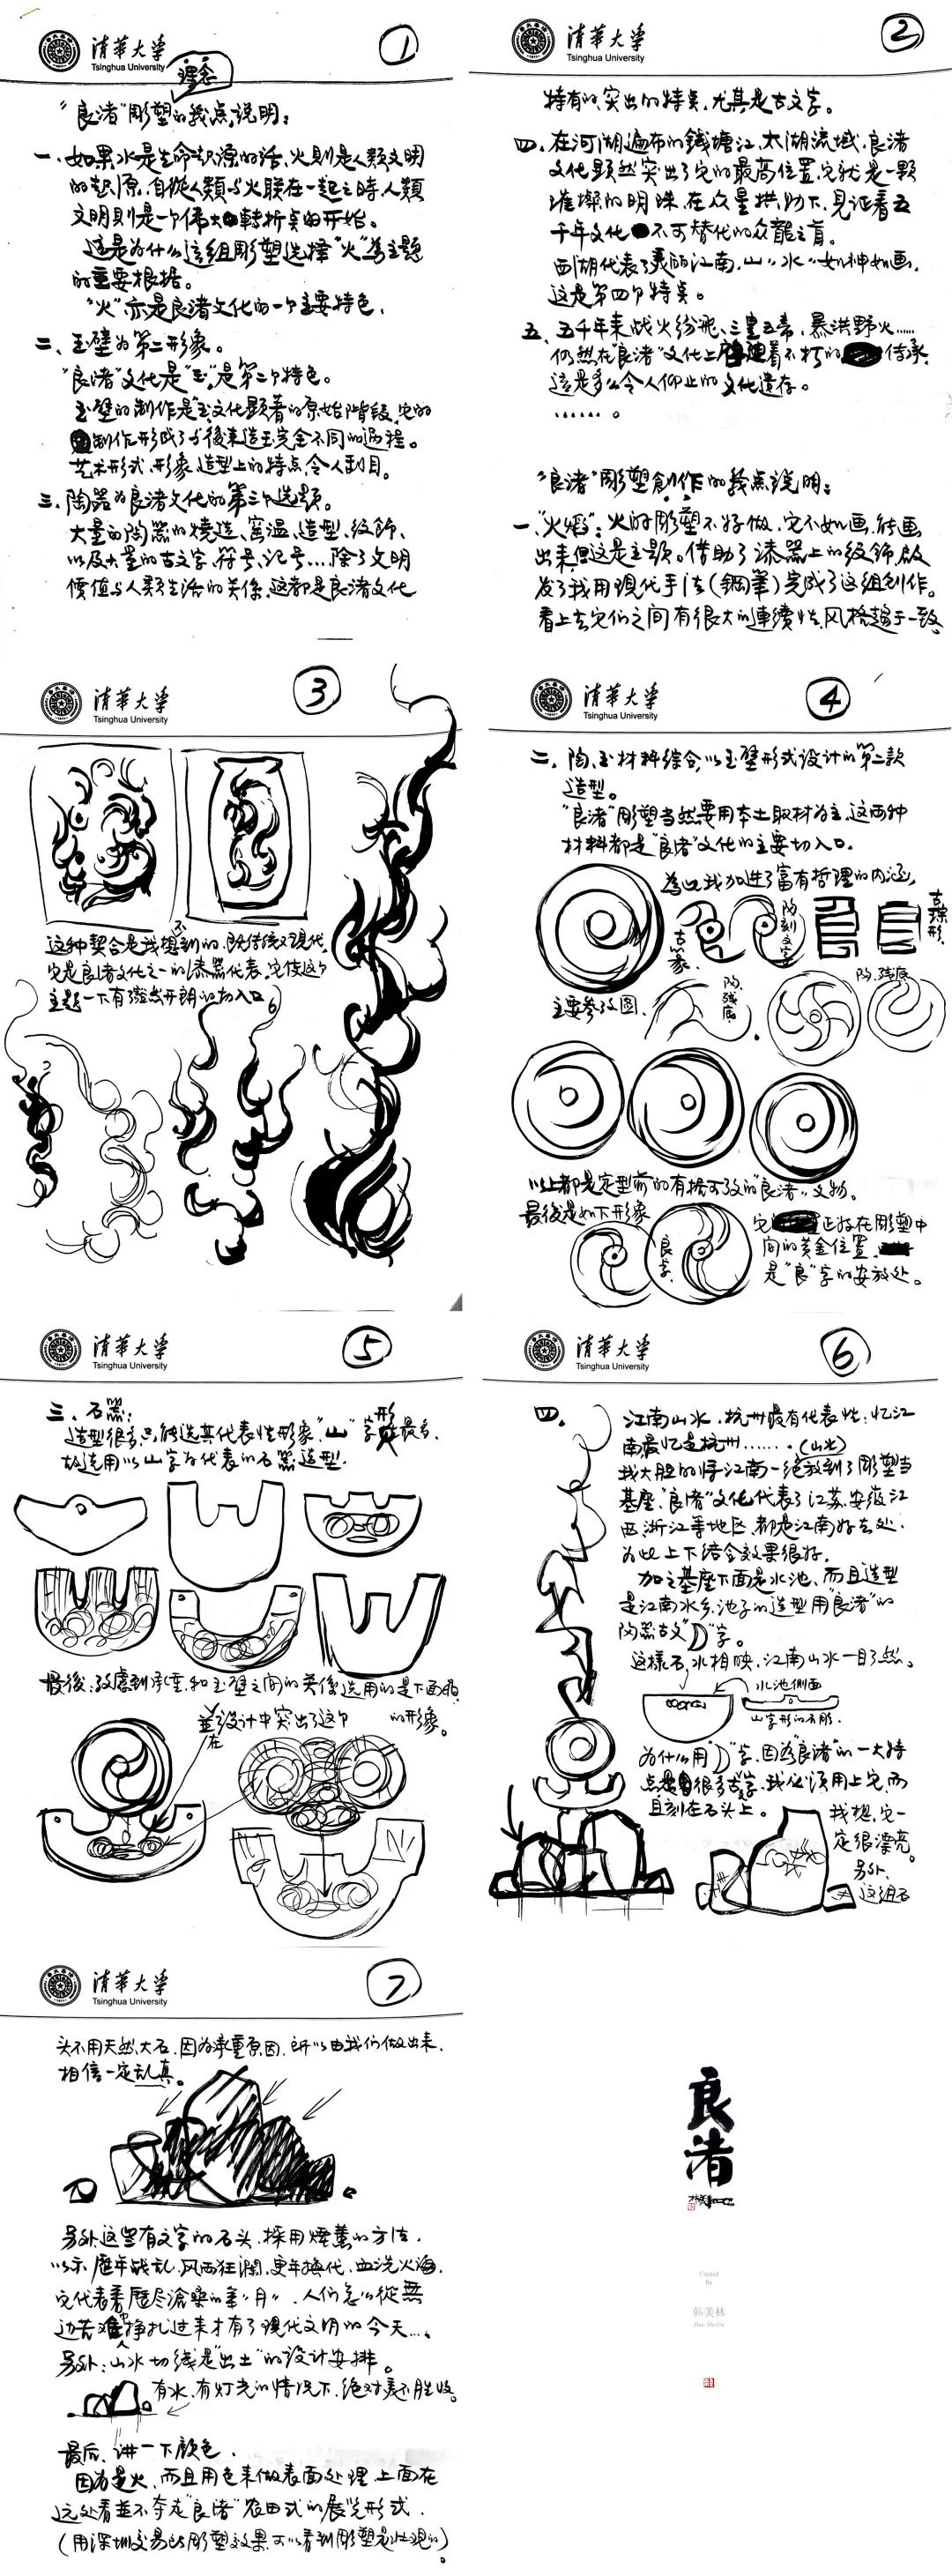 清華大学
Tsinghua University
1
理念
"良渚"彫塑的几点说明：
一、如果水是生命起源的话，火则是人類文明
的起源，自從人類与火联在一起之時，人類
文明则是一个偉大轉折点的开始。
这是为什么这组彫塑选择"火"為主题
的重要根据。
"火"亦是良渚文化的一个主要特色，
二、玉壁为第二形象。
"良渚"文化是"玉"，是第二个特色。
玉壁的制作是玉文化顕著的原始階段，它的
制作形成了与後来造玉完全不同的過程。
艺术形式、形象、造型上的特点，令人刮目。
三、陶器为良渚文化的第三个选题。
大量的陶器的燒造、窰温、造型、纹飾，
以及大量的古文字、符号、记号…除了文明
價值与人类生活的关係，这都是良渚文化
清華大学
Tsinghua University
2
特有的，突出的特点，尤其是古文字。
四、在河湖遍布的錢塘江、太湖流域，良渚
文化顕然突出了它的最高位置，它就是一颗
璀璨的明珠，在众星拱
下，見证着五
千年文化不可替代的众龍之首。
西湖代表了美丽江南，山"水"如神如画，
这是第四个特点。
五、五千年来战火纷飛、三皇五帝、暴洪野火……
仍然在"良渚"文化上
着不朽的传承，
這是多么令人仰止的文化遗存。
……。
"良渚"彫塑創作的幾点说明：
一、"火焰"：火的彫塑不好做，它不如画，能画
出来，但这是主题。借助了漆器上的纹飾，啟
发了我用現代手法（鋼筆）完成了这组创作。
看上去它们之间有很大的連續性，风格趋于一致，
清華大学
Tsinghua University
3
这种契合是我想不到的，既传统又現代，
它是良渚文化之一的漆器代表，它使这个
主题一下有豁然开朗的切入口
清華大学
Tsinghua University
4
二、陶、玉材料综合，以玉壁形式设计的第二款
造型。
"良渚"彫塑当然要用本土取材为主，这两种
材料都是"良渚"文化的主要切入口。
為此我加进了富有哲理的内涵，
陶刻文字
古琮形
主要参攷图、
陶、残底
陶、残底
以上都是定型前的有据可攷的"良渚"文物。
最後是如下形象
良字
它正好在彫塑中
间的黄金位置，
是"良"字的安放处。
清華大学
Tsinghua University
5
三、石器：
造型很多，只能选其代表性形象，"山"字形最多，
故选用以山字为代表的石器造型。
最後，攷慮到承重，和玉壁之间的关係选用的是下面
的形象。
並在设计中突出了这个
清華大学
Tsinghua University
6
四、江南山水，杭州最有代表性；忆江
南最忆是杭州……（山水）
我大胆的将江南一绝放到了彫塑当
基座，"良渚"文化代表了江苏、安徽、江
西、浙江等地区，都是江南好去处，
为此上下结合效果很好。
加之基座下面是水池，而且造型
是江南水乡，池子的造型用"良渚"的
陶器古文"D"字。
这様石、水相映，江南山水一目了然。
水池側面
山字形的石彫。
为什么用"D"字，因為"良渚"的一大特
点是很多古字，我必须用上它，而
且刻在石头上。
我想，它一
定很漂亮。
另外，
这组石
清華大学
Tsinghua University
7
头不用天然大石，因为承重原因，所以由我们做出来，
相信一定乱真。
另外，这些有文字的石头，採用煙薰的方法，
以示歷年战乱，风雨狂瀾，更年換代，血洗火海，
它代表着歷尽滄桑的年"月"，人们怎么從無
边苦难中挣扎过来才有了現代文明的今天…。
另外：山水切线是"出土"的设计安排。
有水，有灯光的情况下，绝对美不胜收。
最后，讲一下颜色，
因为是火，而且用色来做表面处理，上面在
远处看並不夺走"良渚"农田式的展览形式，
（用深圳交易所彫塑效果，可以看到彫塑是壮观的）。
良渚
Created
By
韩美林
Han Meilin